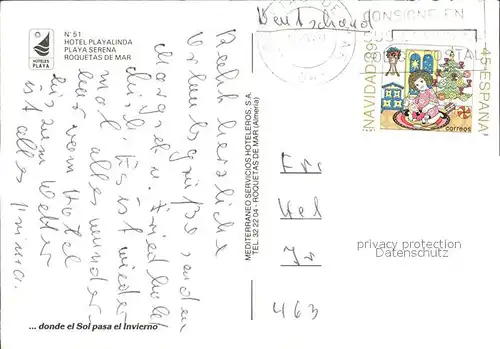 N°51
HOTEL PLAYALINDA
PLAYA SERENA
ROQUETAS DE MAR
HOTELES
PLAYA
Deutschland
CONSIGNE EN
NAVIDAD 89
45 ESPAÑA
correos
Recht herzliche
Urlaubsgrüße senden
Margret u. Friedhelm
Es ist wieder
mal alles wunderbar
vom Hotel
bis zum Wetter
ist alles prima.
MEDITERRANEO SERVICIOS HOTELEROS, S.A.
TEL. 32 22 04 - ROQUETAS DE MAR (Almería)
Hel
463
privacy protection
Datenschutz
... donde el Sol pasa el Invierno